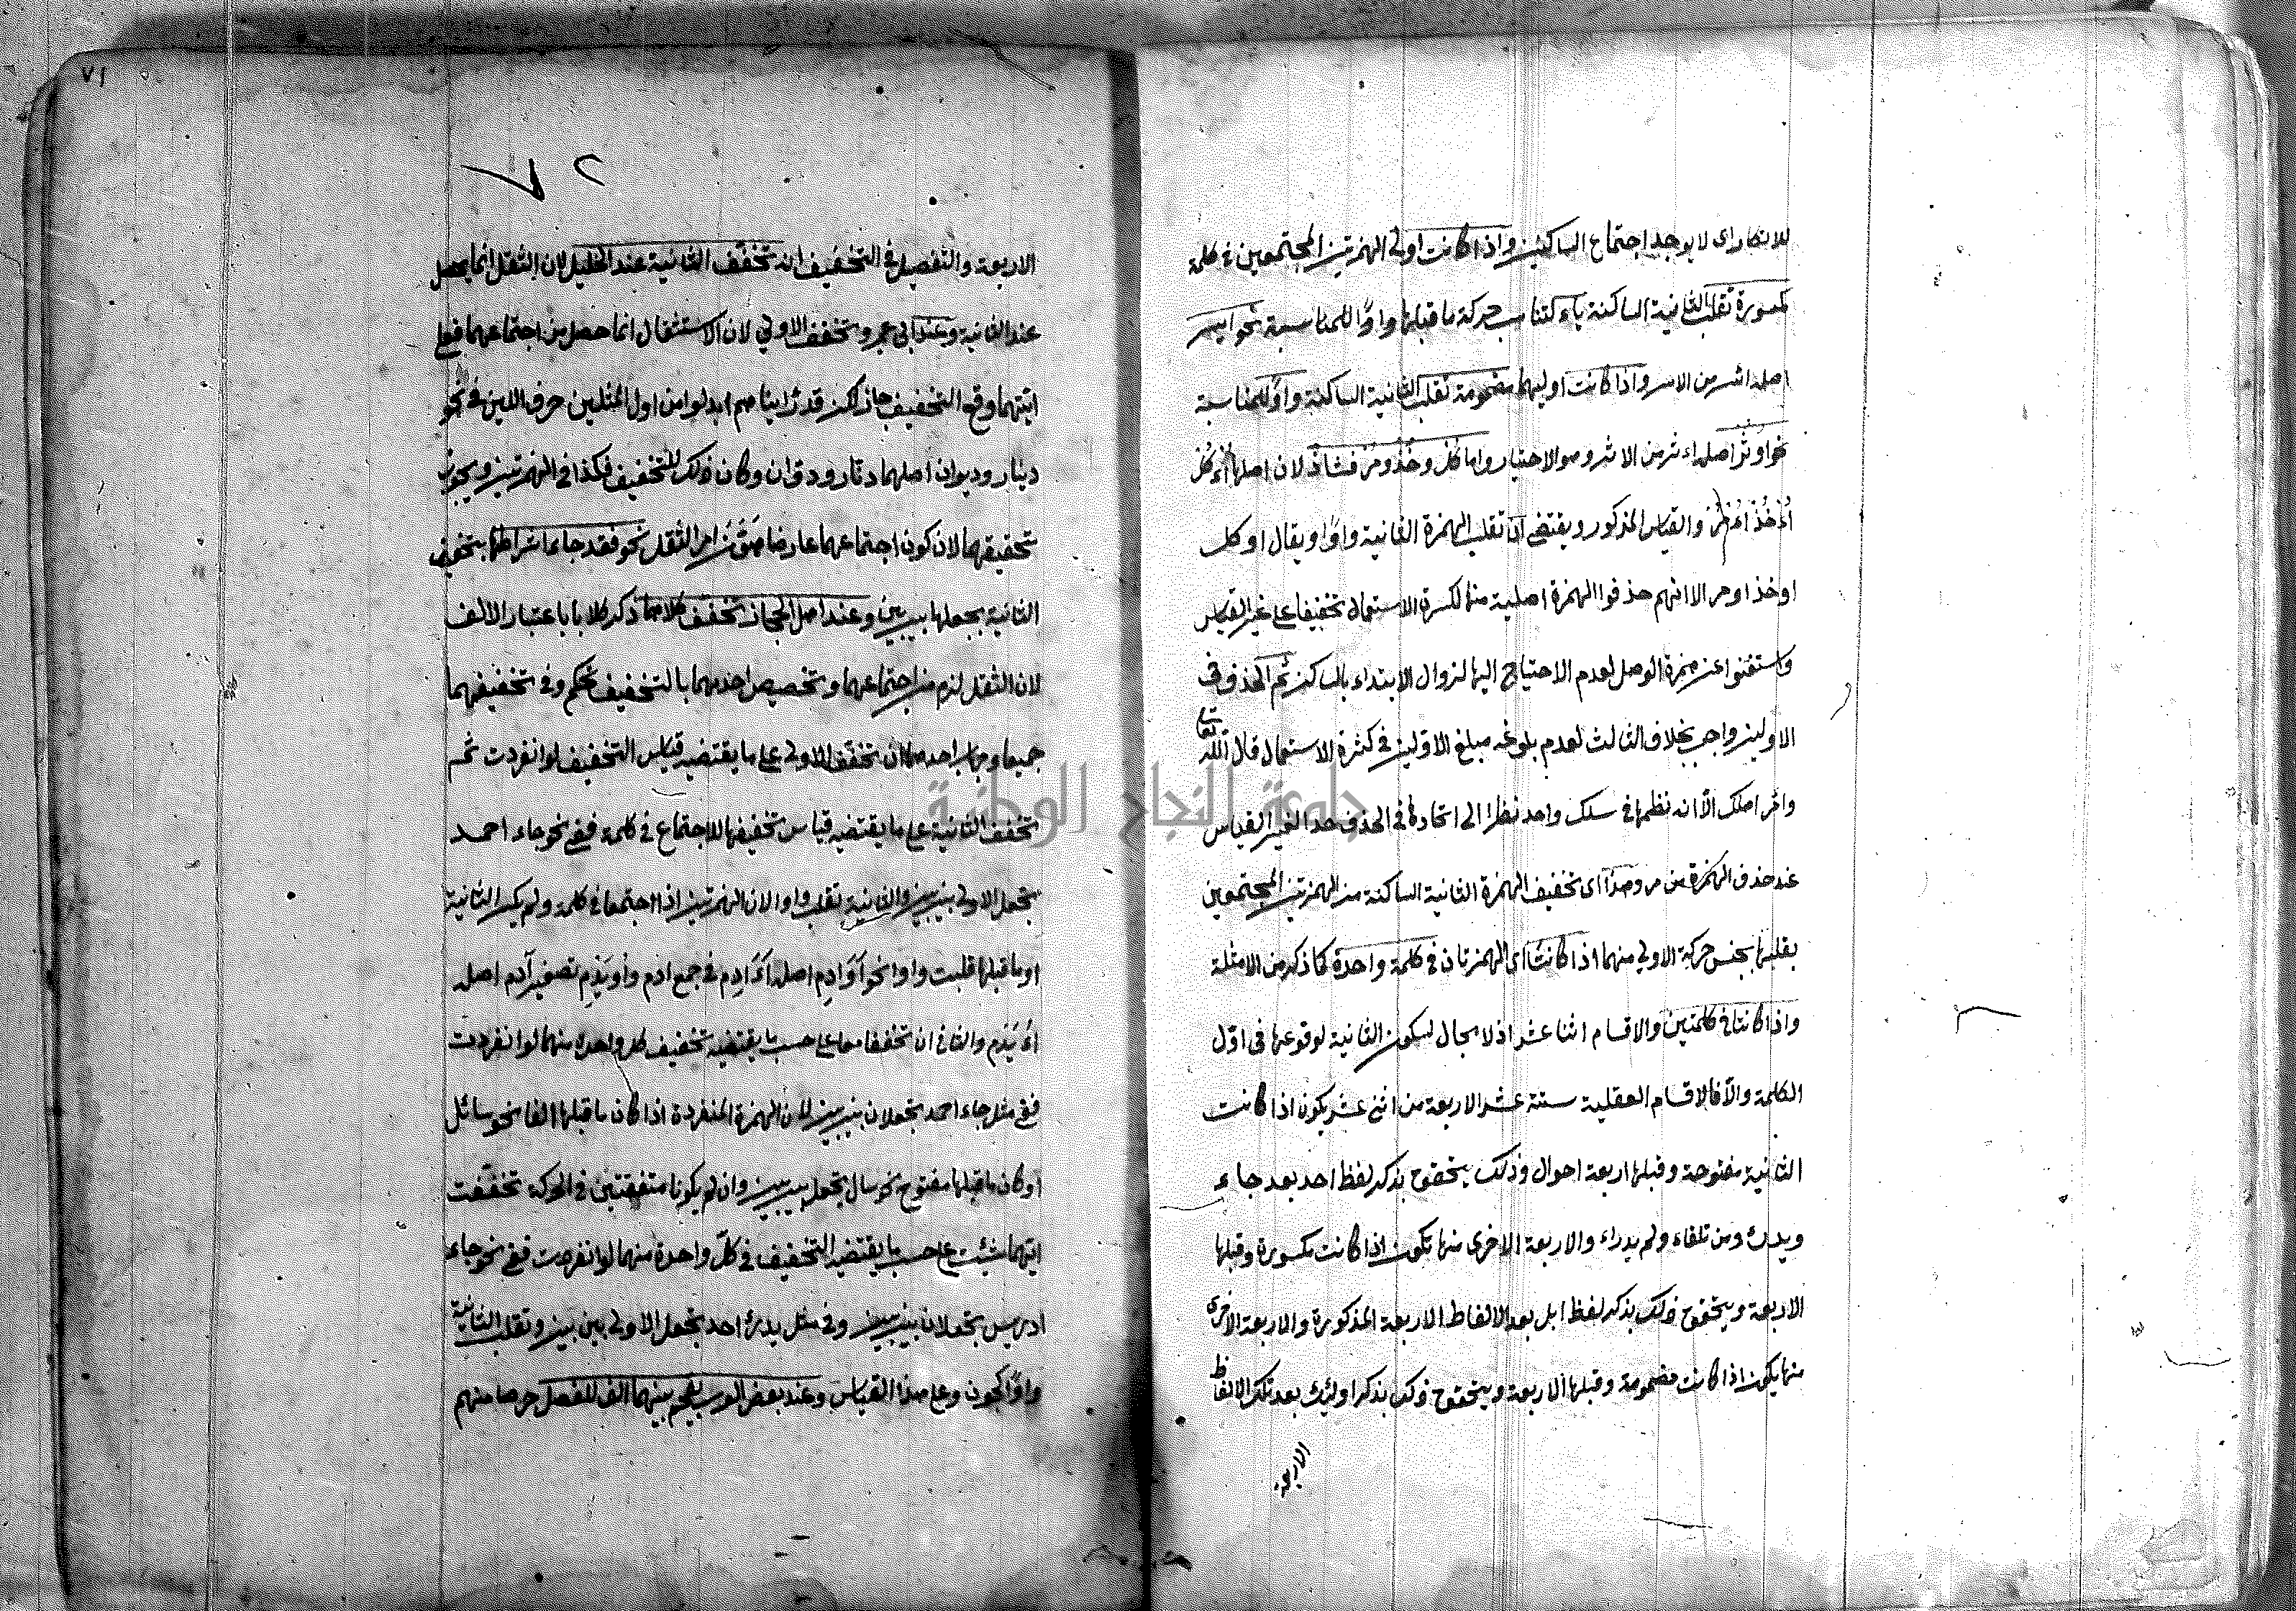 للانكار اى لا يوجد اجتماع الساكنين واذا كانت اولى الهمزتين المجتمعين فى كلمة
مكسورة تقلب الثانية الساكنة ياء لتناسب حركة ما قبلها واوًا للمناسبة نحو ايسر
اصله اسر من الاسر واذا كانت اوليهما مضمومة تقلب الثانية الساكنة واوًا للمناسبة
نحو اوثر اصله اءثر من الاثر وهو الاختيار واما كل وخذ ومر فشاذ لان اصلها اُءكل
اُءخذ اُءمر والقياس المذكور ويقتضى ان تقلب الهمزة الثانية واوًا ويقال اوكل
اوخذ اومر الا انهم حذفوا الهمزة اصلية منها لكثرة الاستعمال تخفيفا على غير القياس
واستغنوا عن همزة الوصل لعدم الاحتياج اليها لزوال الابتداء بالساكن ثم الحذف فى
الاولين واجب بخلاف الثالث لعدم بلوغه مبلغ الاولين فى كثرة الاستعمال قال الله تعا
وامر اهلك الّا انه نظمها فى سلك واحد نظرا الى اتحادها فى الحذف هذا لغير القياس
عند حذف الهمزة من مر وهذا اى تخفيف الهمزة الثانية الساكنة من الهمزتين المجتمعين
بقلبها بجنس حركة الاولى منهما اذا كانتا اى الهمزتان فى كلمة واحدة كما ذكر من الامثلة
واذا كانتا فى كلمتين والاقسام اثنا عشر اذ لا مجال لسكون الثانية لوقوعها فى اوّل
الكلمة والّا فالاقسام العقلية ستة عشر الاربعة من اثنى عشر يكون اذا كانت
الثانية مفتوحة وقبلها اربعة احوال وذلك يتحقق بذكر لفظ احد بعد جاء
ويدرء ومن تلقاء ولم يدراء والاربعة الاخرى منها تكون اذا كانت مكسورة وقبلها
الاربعة ويتحقق ذلك بذكر لفظ ابل بعد الالفاظ الاربعة المذكورة والاربعة الاخرى
منها يكون اذا كانت مضمومة وقبلها الاربعة ويتحقق ذلك بذكر اولئك بعد تلك الالفاظ
الاربعة
٧١
الاربعة والتفصيل فى التخفيف انه تخفّف الثانية عند الخليل لان الثقل انما يحصل
عند الثانية وعند ابى عمرو تخفف الاولى لان الاستثقال انما حصل من اجتماعهما فعلى
ايتهما وقع التخفيف جاز لكن قد راينا هم ابدلوا من اول المثلين حرف اللين فى نحو
دينار وديوان اصلهما دنّار ودوّان وكان ذلك للتخفيف فكذا فى الهمزتين ويجوز
تحقيقهما لان كون اجتماعهما عارضا هون امر الثقل نحو فقد جاء اشراطها بتخفيف
الثانية بجعلها بين بين وعند اهل الحجاز تخفّف كلاهما ذكر كلا باعتبار الالف
لان الثقل لزم من اجتماعهما وتخصيص احدهما بالتخفيف تحكم وفى تخفيفهما
جميعا وجهان احدهما ان تخفّف الاولى على ما يقتضيه قياس التخفيف لو انفردت ثم
تخفّف الثانية على ما يقتضيه قياس تخفيفها للاجتماع فى كلمة ففى نحو جاء احمد
تجعل الاولى بين بين والثانية تقلب واوا لان الهمزتين اذا اجتمعا فى كلمة ولم يكسر الثانية
او ما قبلها قلبت واوا نحو اَوَادِم اصله اَءَادِم فى جمع ادم واُوَيْدِم تصغير آدم اصله
اُءَيْدِم والثانى ان تخففا معا على حسب ما يقتضيه تخفيف كل واحدة منهما لو انفردت
ففى مثل جاء احمد تجعلان بين بين لان الهمزة المنفردة اذا كان ما قبلها الفا نحو سائل
او كان ما قبلها مفتوح نحو سال تجعل بين بين وان لم يكونا متفقتين فى الحركة تخفّفت
ايتهما شئت على حسب ما يقتضيه التخفيف فى كلّ واحدة منهما لو انفردت ففى نحو جاء
ادريس تجعلان بين بين وفى مثل يدرئ احد تجعل الاولى بين بين وتقلب الثانية
واوًا كجون وعلى هذا القياس وعند بعض العرب يقحم بينهما الف للفصل حرصا منهم
جامعة النجاح الوطنية